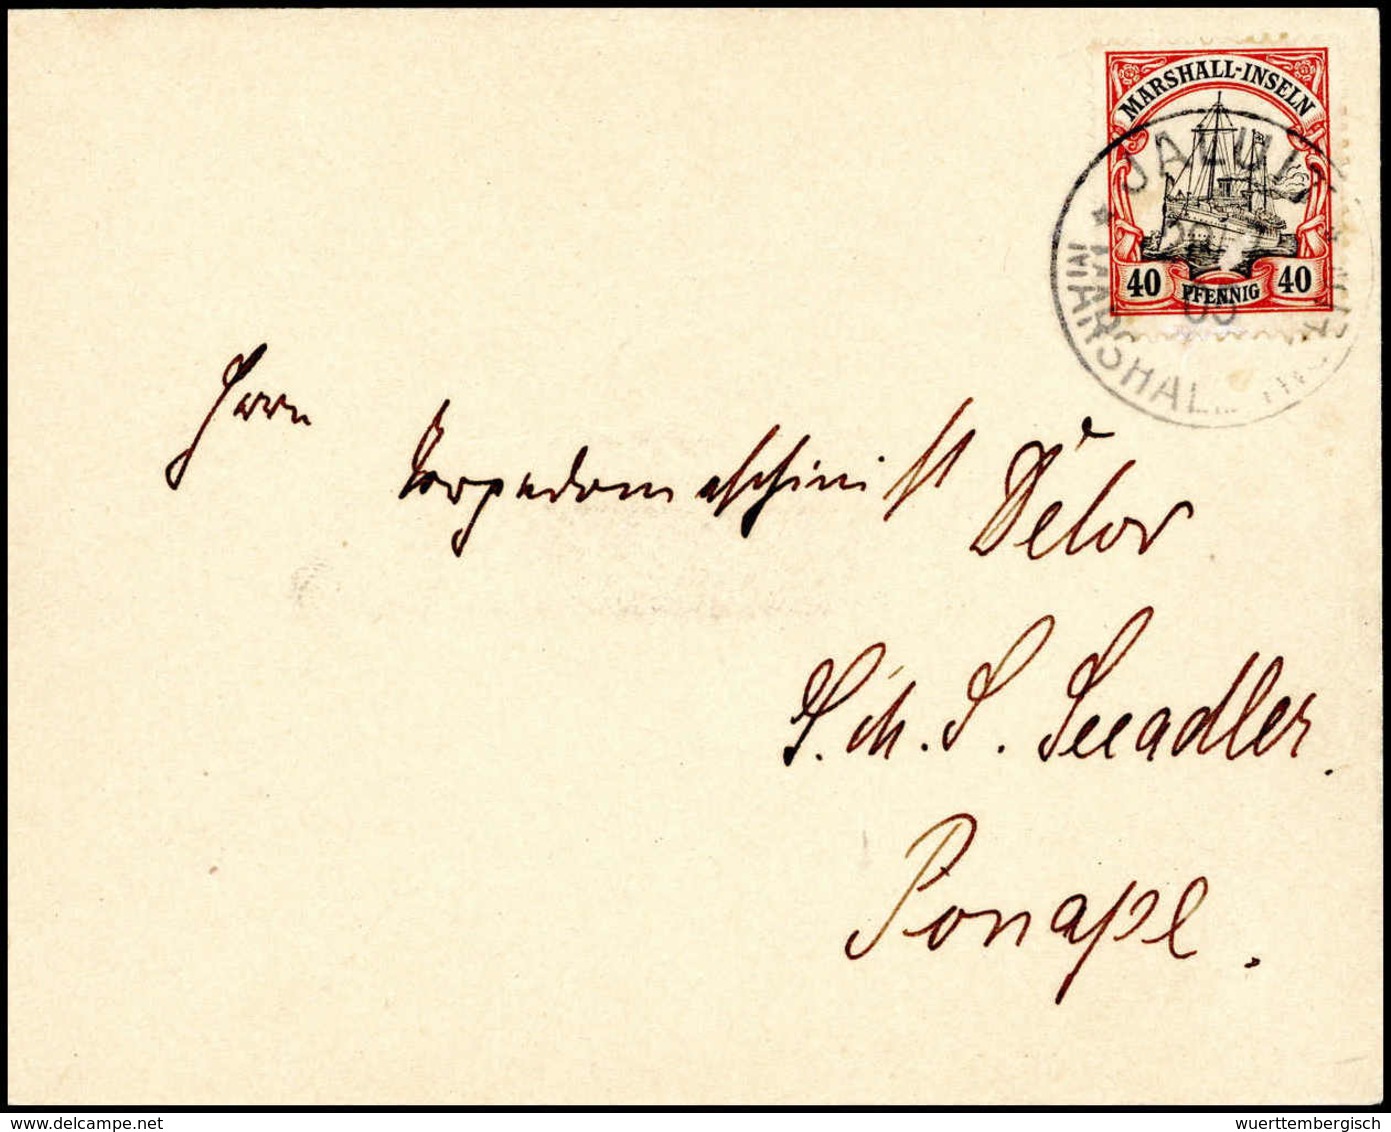 MARSHALL-INSELN
40 PFENNIG 40
JALUIT
MARSHALL INSELN
Herrn
Torpedomaschinist Delor
S. M. S. Seeadler.
Ponape.
wuerttembergisch